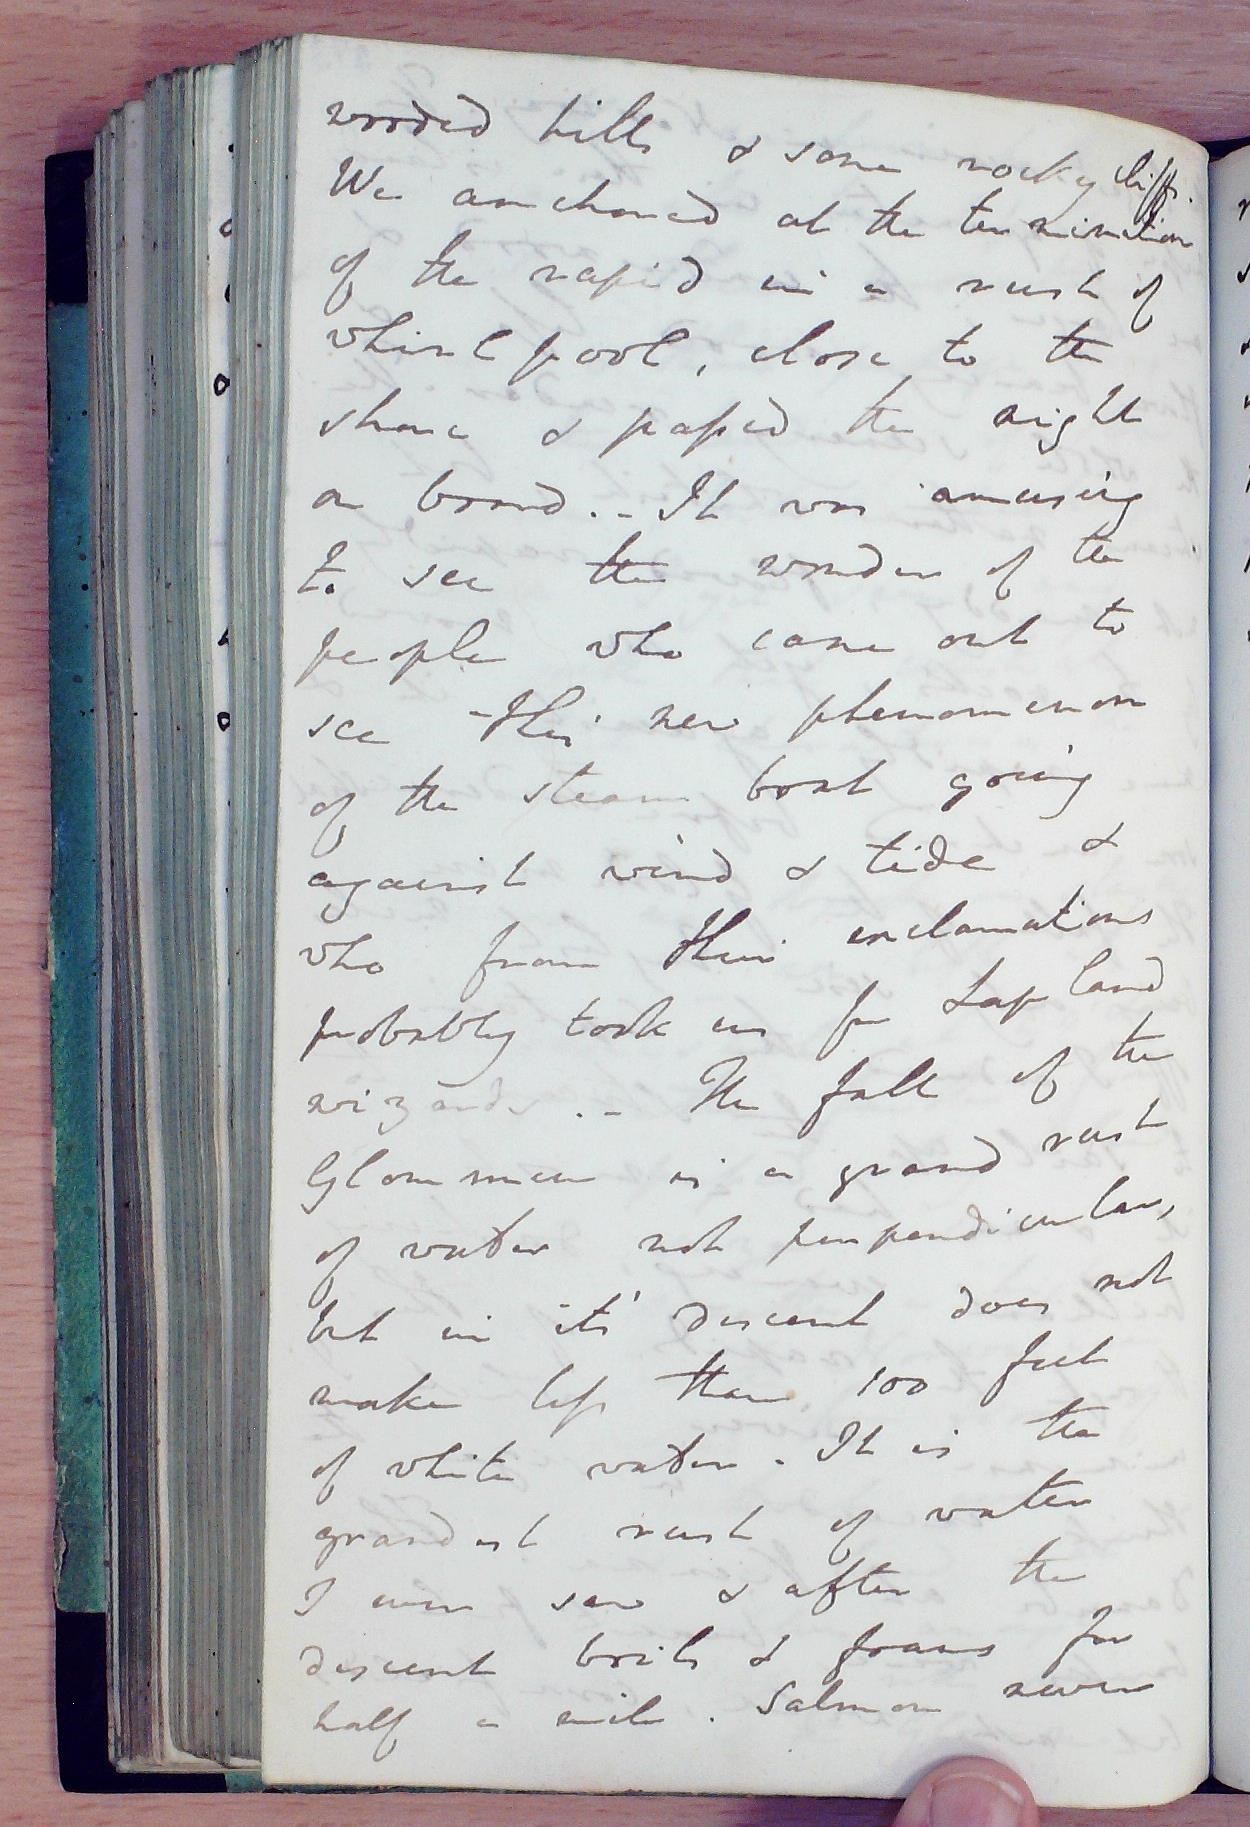 wooded hills & some rocky cliffs.
We anchored at the termination
of the rapid in a rush of
whirlpool, close to the
shore & passed the night
on board. - It was amusing
to see the wonder of the
people who came out to
see this new phenomenon
of the steam boat going
against wind & tide &
who from their exclamations
probably took us for Lapland
wizards. - The fall of the
Glommen is a grand rush
of water not perpendicular,
but in it's descent does not
make less than 100 feet
of white water. It is the
grandest rush of water
I ever saw & after the
descent boils & foams for
half a mile. Salmon never